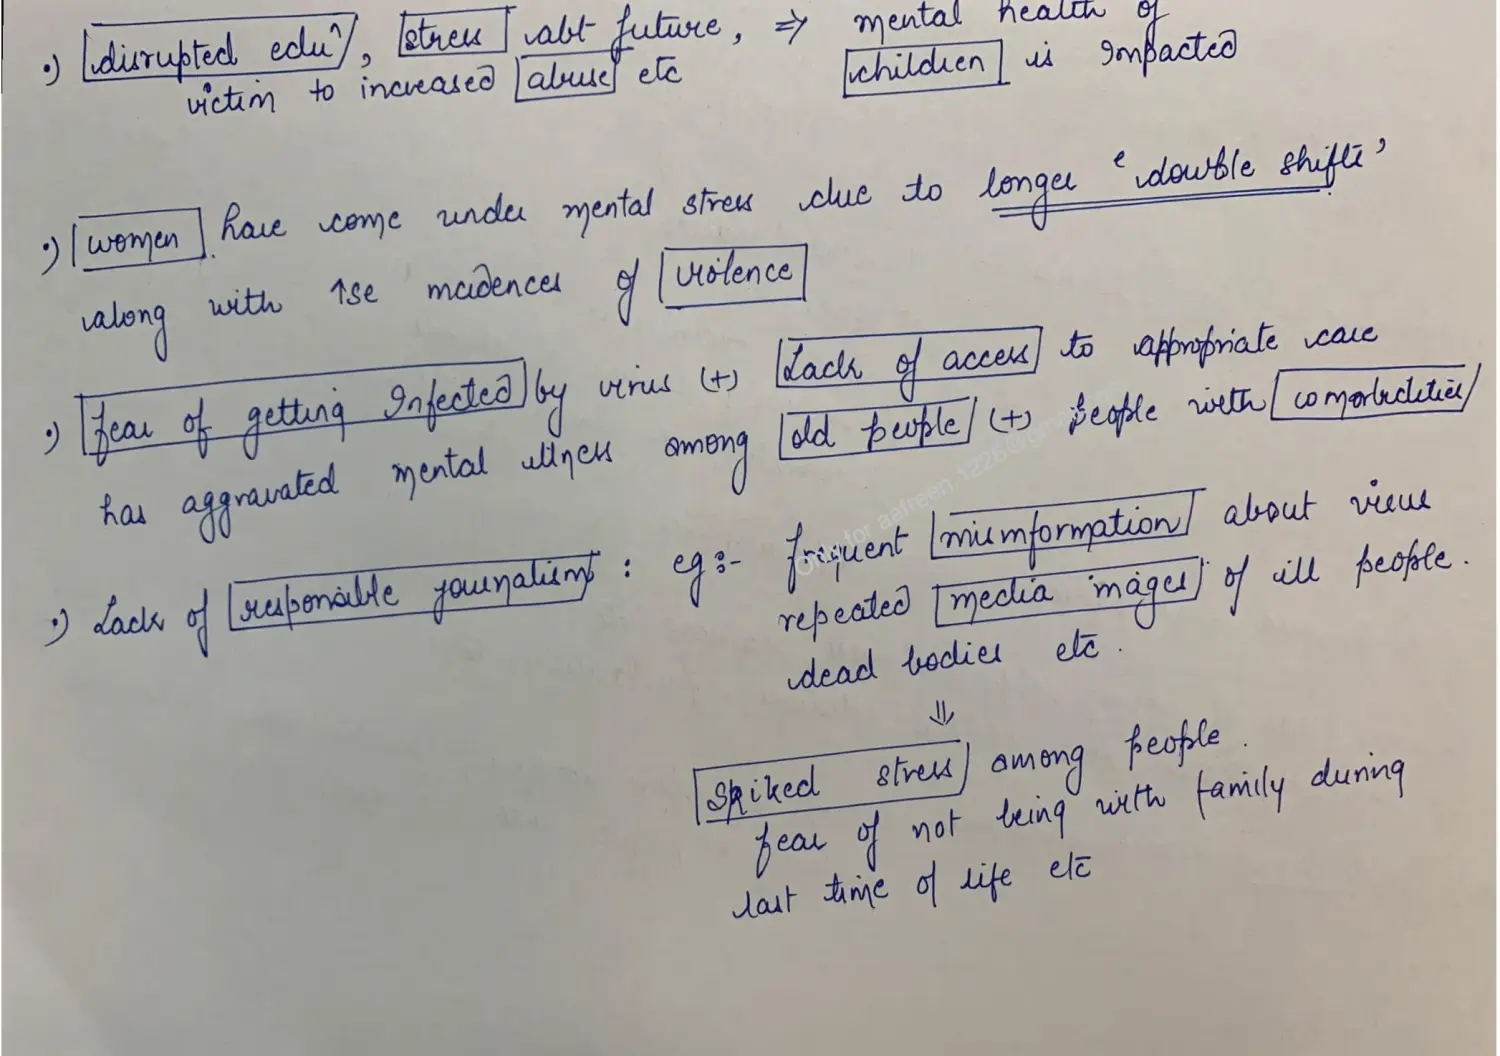 •) disrupted eduⁿ, stress abt future, ⇒ mental health of
victim to increased abuse etc children is impacted
•) women have come under mental stress due to longer 'double shifts'
along with ↑se incidences of violence
•) fear of getting infected by virus (+) Lack of access to appropriate care
has aggravated mental illness among old people (+) people with comorbidities
•) Lack of responsible journalism : eg :- frequent misinformation about virus
repeated media images of ill people.
dead bodies etc.
⇓
Spiked stress among people.
fear of not being with family during
last time of life etc